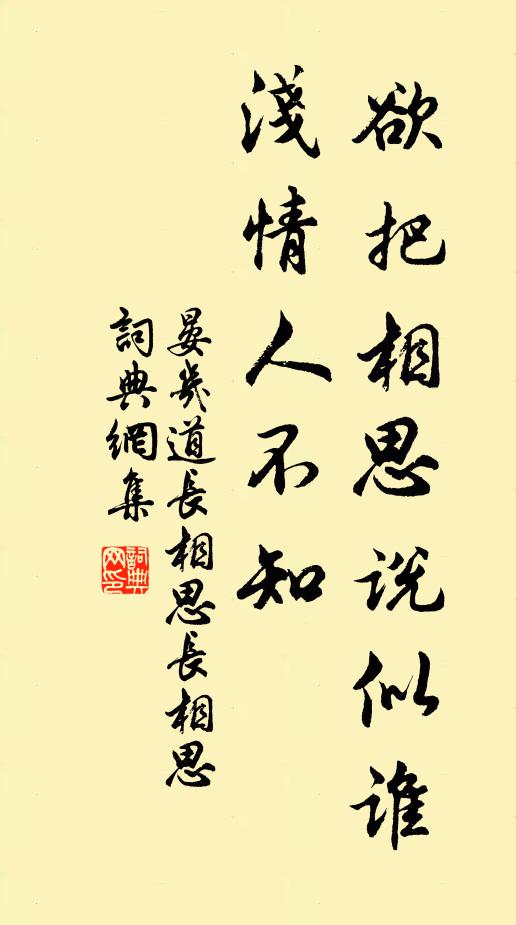 欲把相思説似誰
淺情人不知
晏幾道長相思長相思
詞典網集
詞典網印